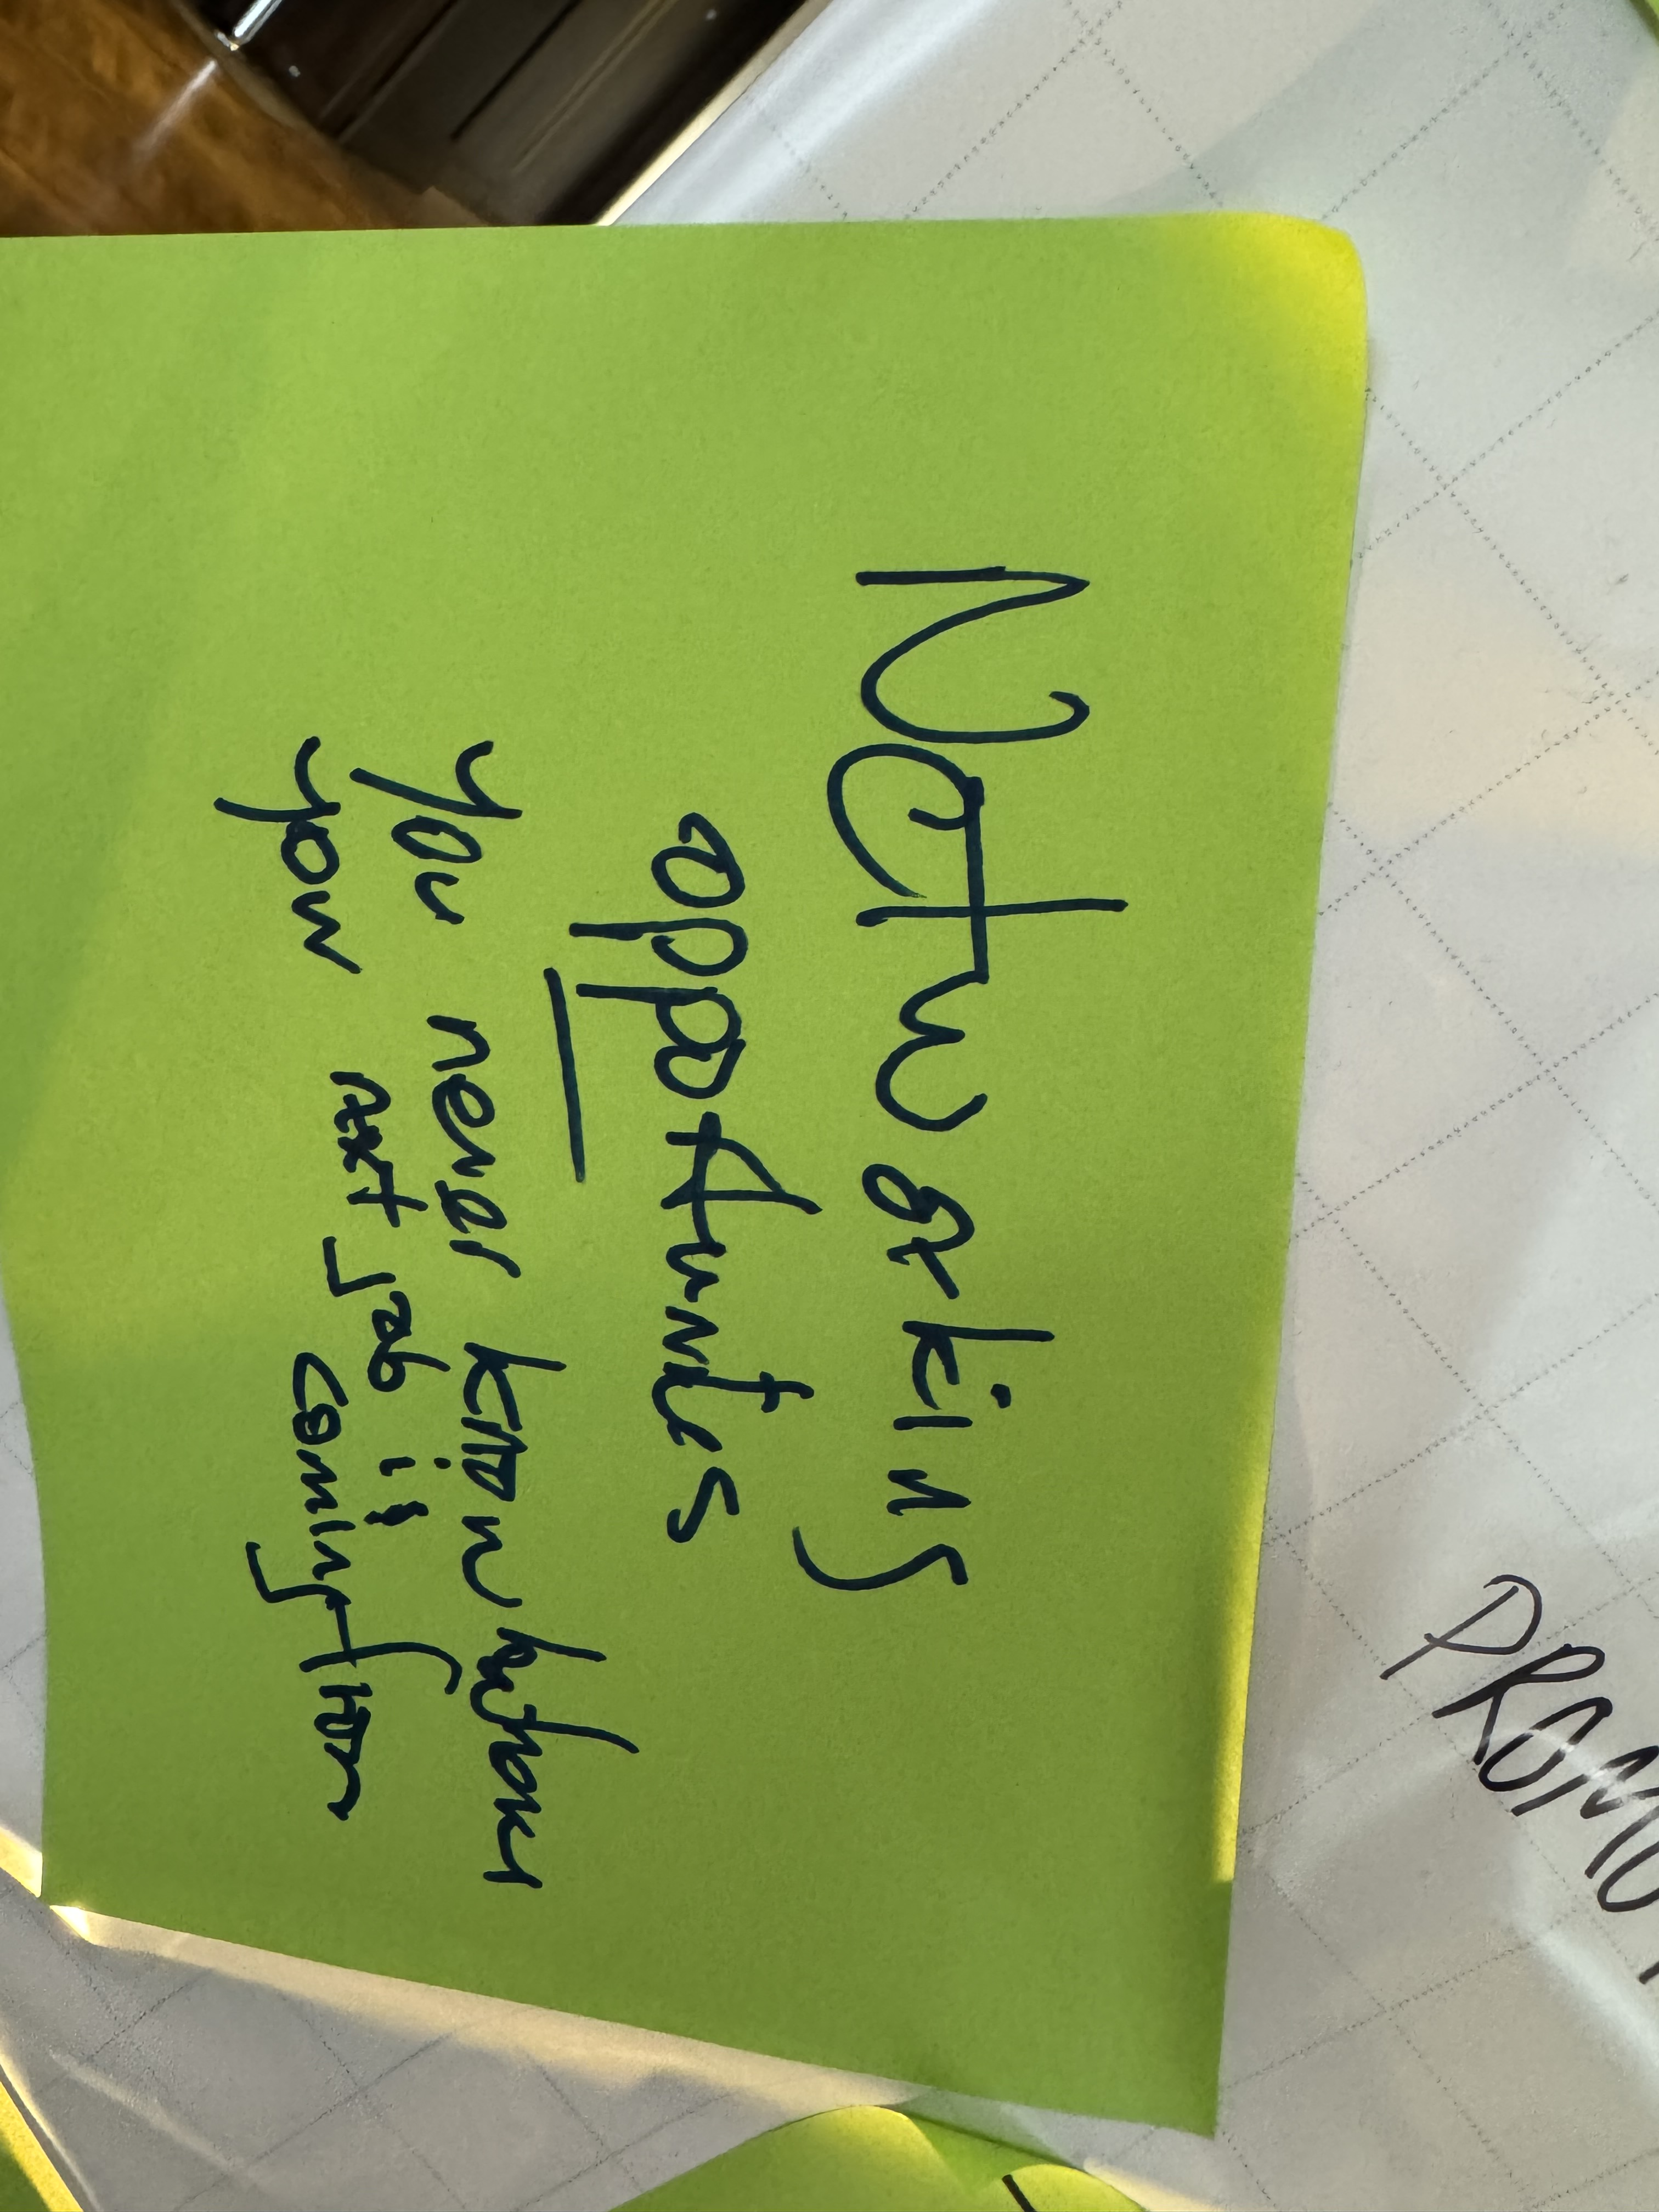 Networking
opportunities
—
You never know where
your next job is
coming from
PROMO